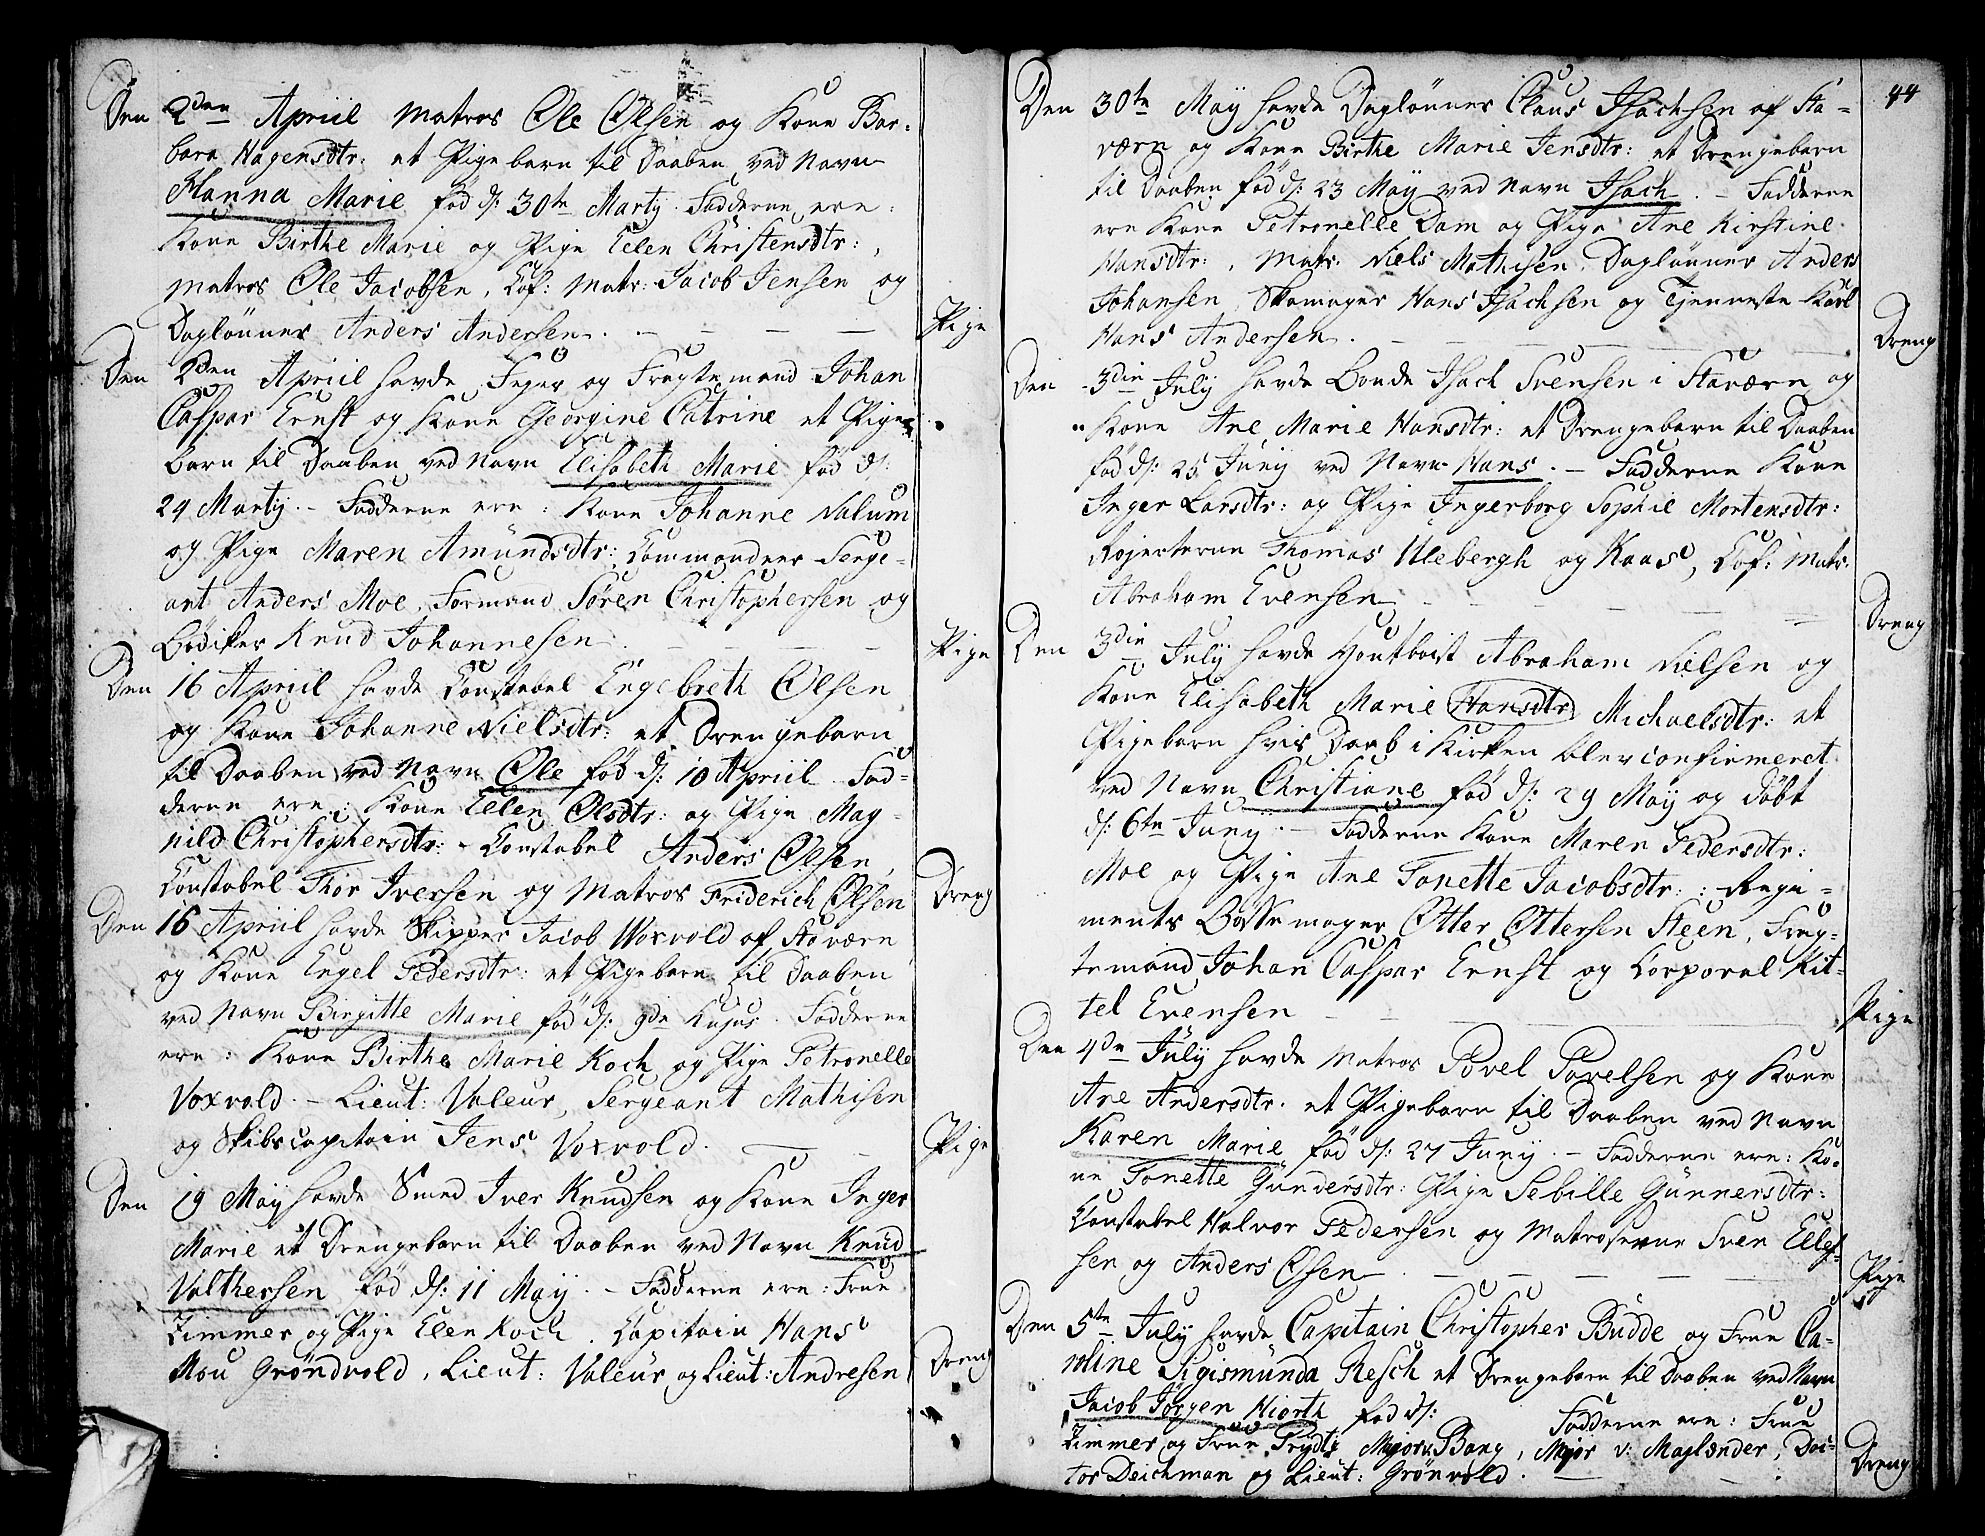 Den 2den Apriil Matros Ole Olsen og Kone Bar:
bara Hagensdtr: et Pigebarn til Daaben ved Navn
Hanna Marie fød d: 30te Martij. Fadderne ere:
Kone Birthe Marie og Pige Elen Christensdtr:,
Matros Ole Jacobsen, Cof: Matr: Jacob Jensen og
Daglønner Anders Andersen. Pige
Den 2den Apriil havde Fejer og Fragtemand Johan
Caspar Ernst og Kone Georgine Catrine et Pige-
barn til Daaben ved Navn Elisabeth Marie fød d:
24 Martij. – Fadderne ere: Kone Johanne Nalum
og Pige Maren Amundsdtr: Commandeer Serge-
ant Anders Moe, Formand Sören Christophersen og
Bødiker Knud Johannesen. Pige
Den 16 Apriil havde Constabel Engebreth Olsen
og Kone Johanne Nielsdtr: et Drengebarn
til Daaben ved Navn Ole fød d: 10 Apriil. Fad-
derne ere: Kone Ellen Olsdtr: og Pige Mag-
nild Christophersdtr: – Constabel Anders Olsen,
Constabel Thor Iversen og Matros Friderich Olsen Dreng
Den 16 Apriil havde Skipper Jacob Woxvold af Staværn
og Kone Engel Pedersdtr: et Pigebarn til Daaben
ved Navn Birgitte Marie fød d: 9de Hujus. Fadderne
ere: Kone Birthe Marie Koch og Pige Petronelle
Voxvold. – Lieut: Valeur, Sergeant Mathisen
og Skibscapitain Jens Voxvold. Pige
Den 19 May havde Smed Iver Knudsen og Kone Inger
Marie et Drengebarn til Daaben ved Navn Knud
Valthersen fød d: 11 May. – Fadderne ere: Frue
Zimmer og Pige Elen Koch. Capitain Hans
Nou Gröndvold, Lieut: Valeur og Lieut: Andresen Dreng
44
Den 30te May havde Daglønner Claus Isachsen af Sta-
værn og Kone Birthe Marie Jensdtr: et Drengebarn
til Daaben fød d: 23 May ved Navn Isach. – Fadderne
ere Kone Petronelle Dam og Pige Ane Kirstine
Hansdtr:, Matr: Niels Mathisen, Daglønner Anders
Johansen, Skomager Hans Isachsen og Tjenneste Karl
Hans Andersen. Dreng
Den 3die July havde Bonde Isach Svensen i Staværn og
Kone Ane Marie Hansdtr: et Drengebarn til Daaben
fød d: 25 Junij ved Navn Hans. – Fadderne Kone
Inger Larsdtr: og Pige Ingerborg Sophie Mortensdtr:
Rojerterne Thomas Ulebergh og Kaas, Cof: Matr:
Abraham Evensen Dreng
Den 3die July havde Houtboist Abraham Nielsen og
Kone Elisabeth Marie Hansdtr Michaelsdtr: et
Pigebarn hvis Daab i Kirken blev confirmeret
ved Navn Christiane fød d: 29 May og døbt
d: 6te Junij. – Fadderne Kone Maren Pedersdtr:
Moe og Pige Ane Tonette Jacobsdtr: : Regi-
ments Bössemager Otter Ottersen Steen, Frag-
temand Johan Caspar Ernst og Corporal Kit-
tel Evensen Pige
Den 4de July havde Matros Povel Povelsen og Kone
Ane Andersdtr. et Pigebarn til Daaben ved Navn
Karen Marie fød d: 27 Junij. – Fadderne ere: Ko-
ne Tonette Gundersdtr: Pige Sebille Gunnersdtr:
Constabel Halvor Pedersen og Matroserne Sven Ellef-
sen og Anders Olsen. Pige
Den 5te July havde Capitain Christopher Budde og Frue Ca-
roline Sigismunda Resch et Drengebarn til Daaben ved Navn
Jacob Jörgen Hiorth fød d: Fadderne ere: Frue
Zimmer og Frue Prydtz Major v: Bang, Major v: Maglænder, Doc-
tor Deichman og Lieut: Grönvold. Dreng